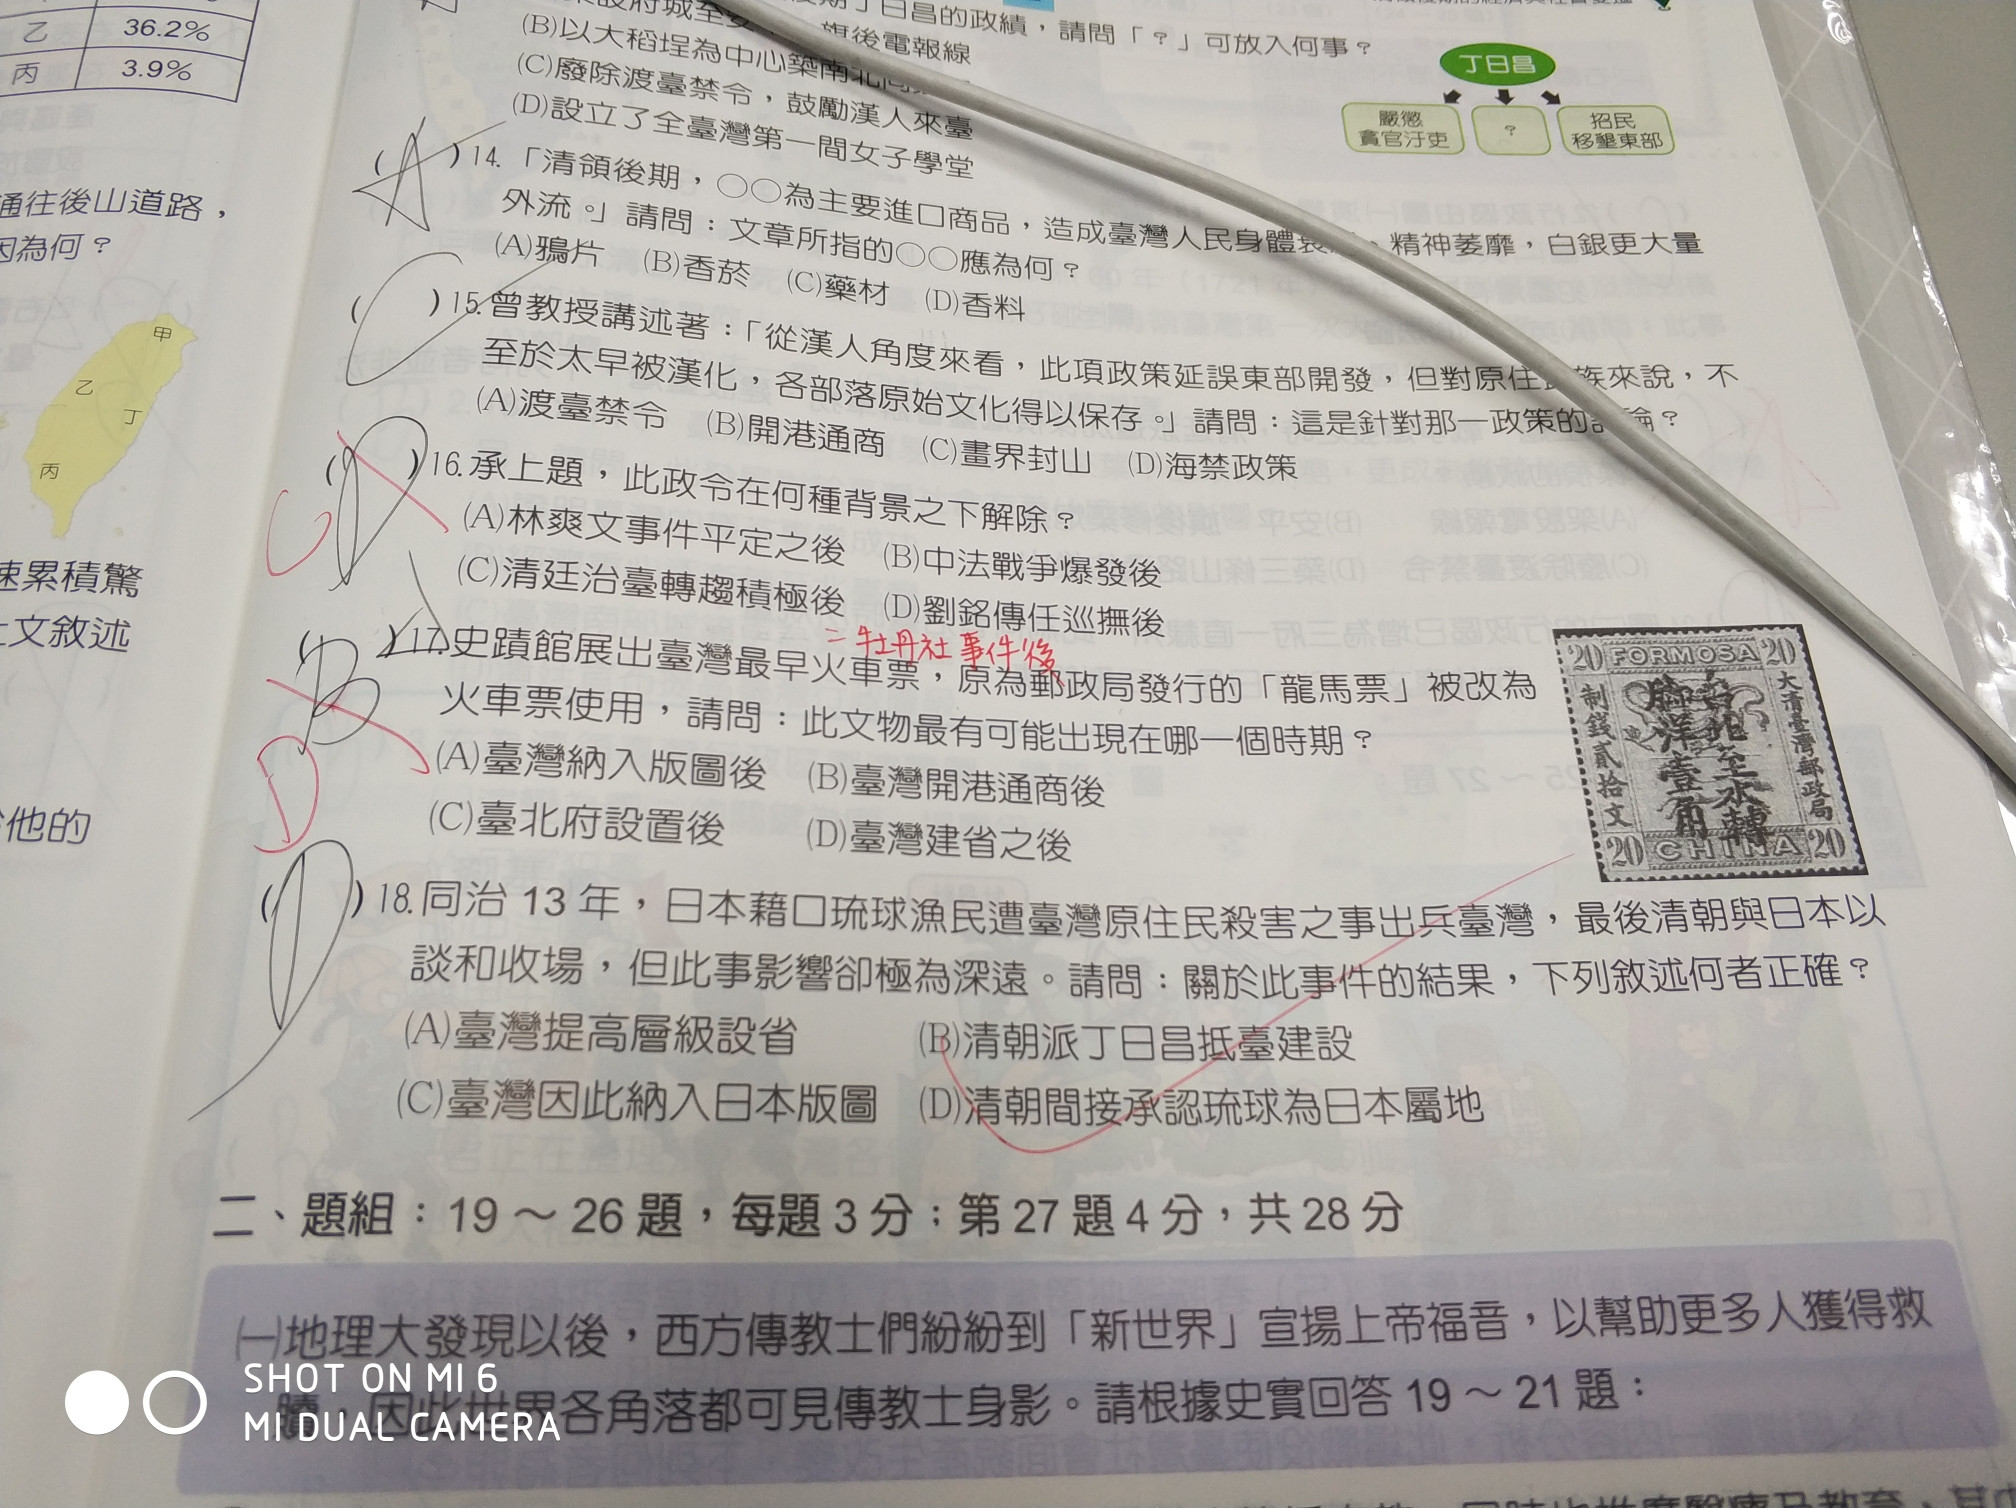 乙 36.2%
丙 3.9%
通往後山道路，
因為何？
甲
乙
丁
丙
速累積驚
上文敘述
他的
丁日昌的政績，請問「？」可放入何事？
旗後電報線
(B)以大稻埕為中心築南北
(C)廢除渡臺禁令，鼓勵漢人來臺
(D)設立了全臺灣第一間女子學堂
丁日昌
嚴懲
貪官汙吏
?
招民
移墾東部
(A)14.「清領後期，○○為主要進口商品，造成臺灣人民身體 、精神萎靡，白銀更大量
外流。」請問：文章所指的○○應為何？
(A)鴉片 (B)香菸 (C)藥材 (D)香料
(C)15.曾教授講述著：「從漢人角度來看，此項政策延誤東部開發，但對原住 族來說，不
至於太早被漢化，各部落原始文化得以保存。」請問：這是針對那一政策的 論？
(A)渡臺禁令 (B)開港通商 (C)畫界封山 (D)海禁政策
C (D)16.承上題，此政令在何種背景之下解除？
(A)林爽文事件平定之後 (B)中法戰爭爆發後
(C)清廷治臺轉趨積極後 (D)劉銘傳任巡撫後
=牡丹社事件後
D (B)17.史蹟館展出臺灣最早火車票，原為郵政局發行的「龍馬票」被改為
火車票使用，請問：此文物最有可能出現在哪一個時期？
(A)臺灣納入版圖後 (B)臺灣開港通商後
(C)臺北府設置後 (D)臺灣建省之後
20 FORMOSA 20
大清臺灣郵政局
台北至水轉
腳洋壹角
制錢貳拾文
20 CHINA 20
(D)18.同治 13 年，日本藉口琉球漁民遭臺灣原住民殺害之事出兵臺灣，最後清朝與日本以
談和收場，但此事影響卻極為深遠。請問：關於此事件的結果，下列敘述何者正確？
(A)臺灣提高層級設省 (B)清朝派丁日昌抵臺建設
(C)臺灣因此納入日本版圖 (D)清朝間接承認琉球為日本屬地
二、題組：19～26 題，每題 3 分；第 27 題 4 分，共 28 分
㈠地理大發現以後，西方傳教士們紛紛到「新世界」宣揚上帝福音，以幫助更多人獲得救
贖，因此世界各角落都可見傳教士身影。請根據史實回答 19～21 題：
SHOT ON MI 6
MI DUAL CAMERA